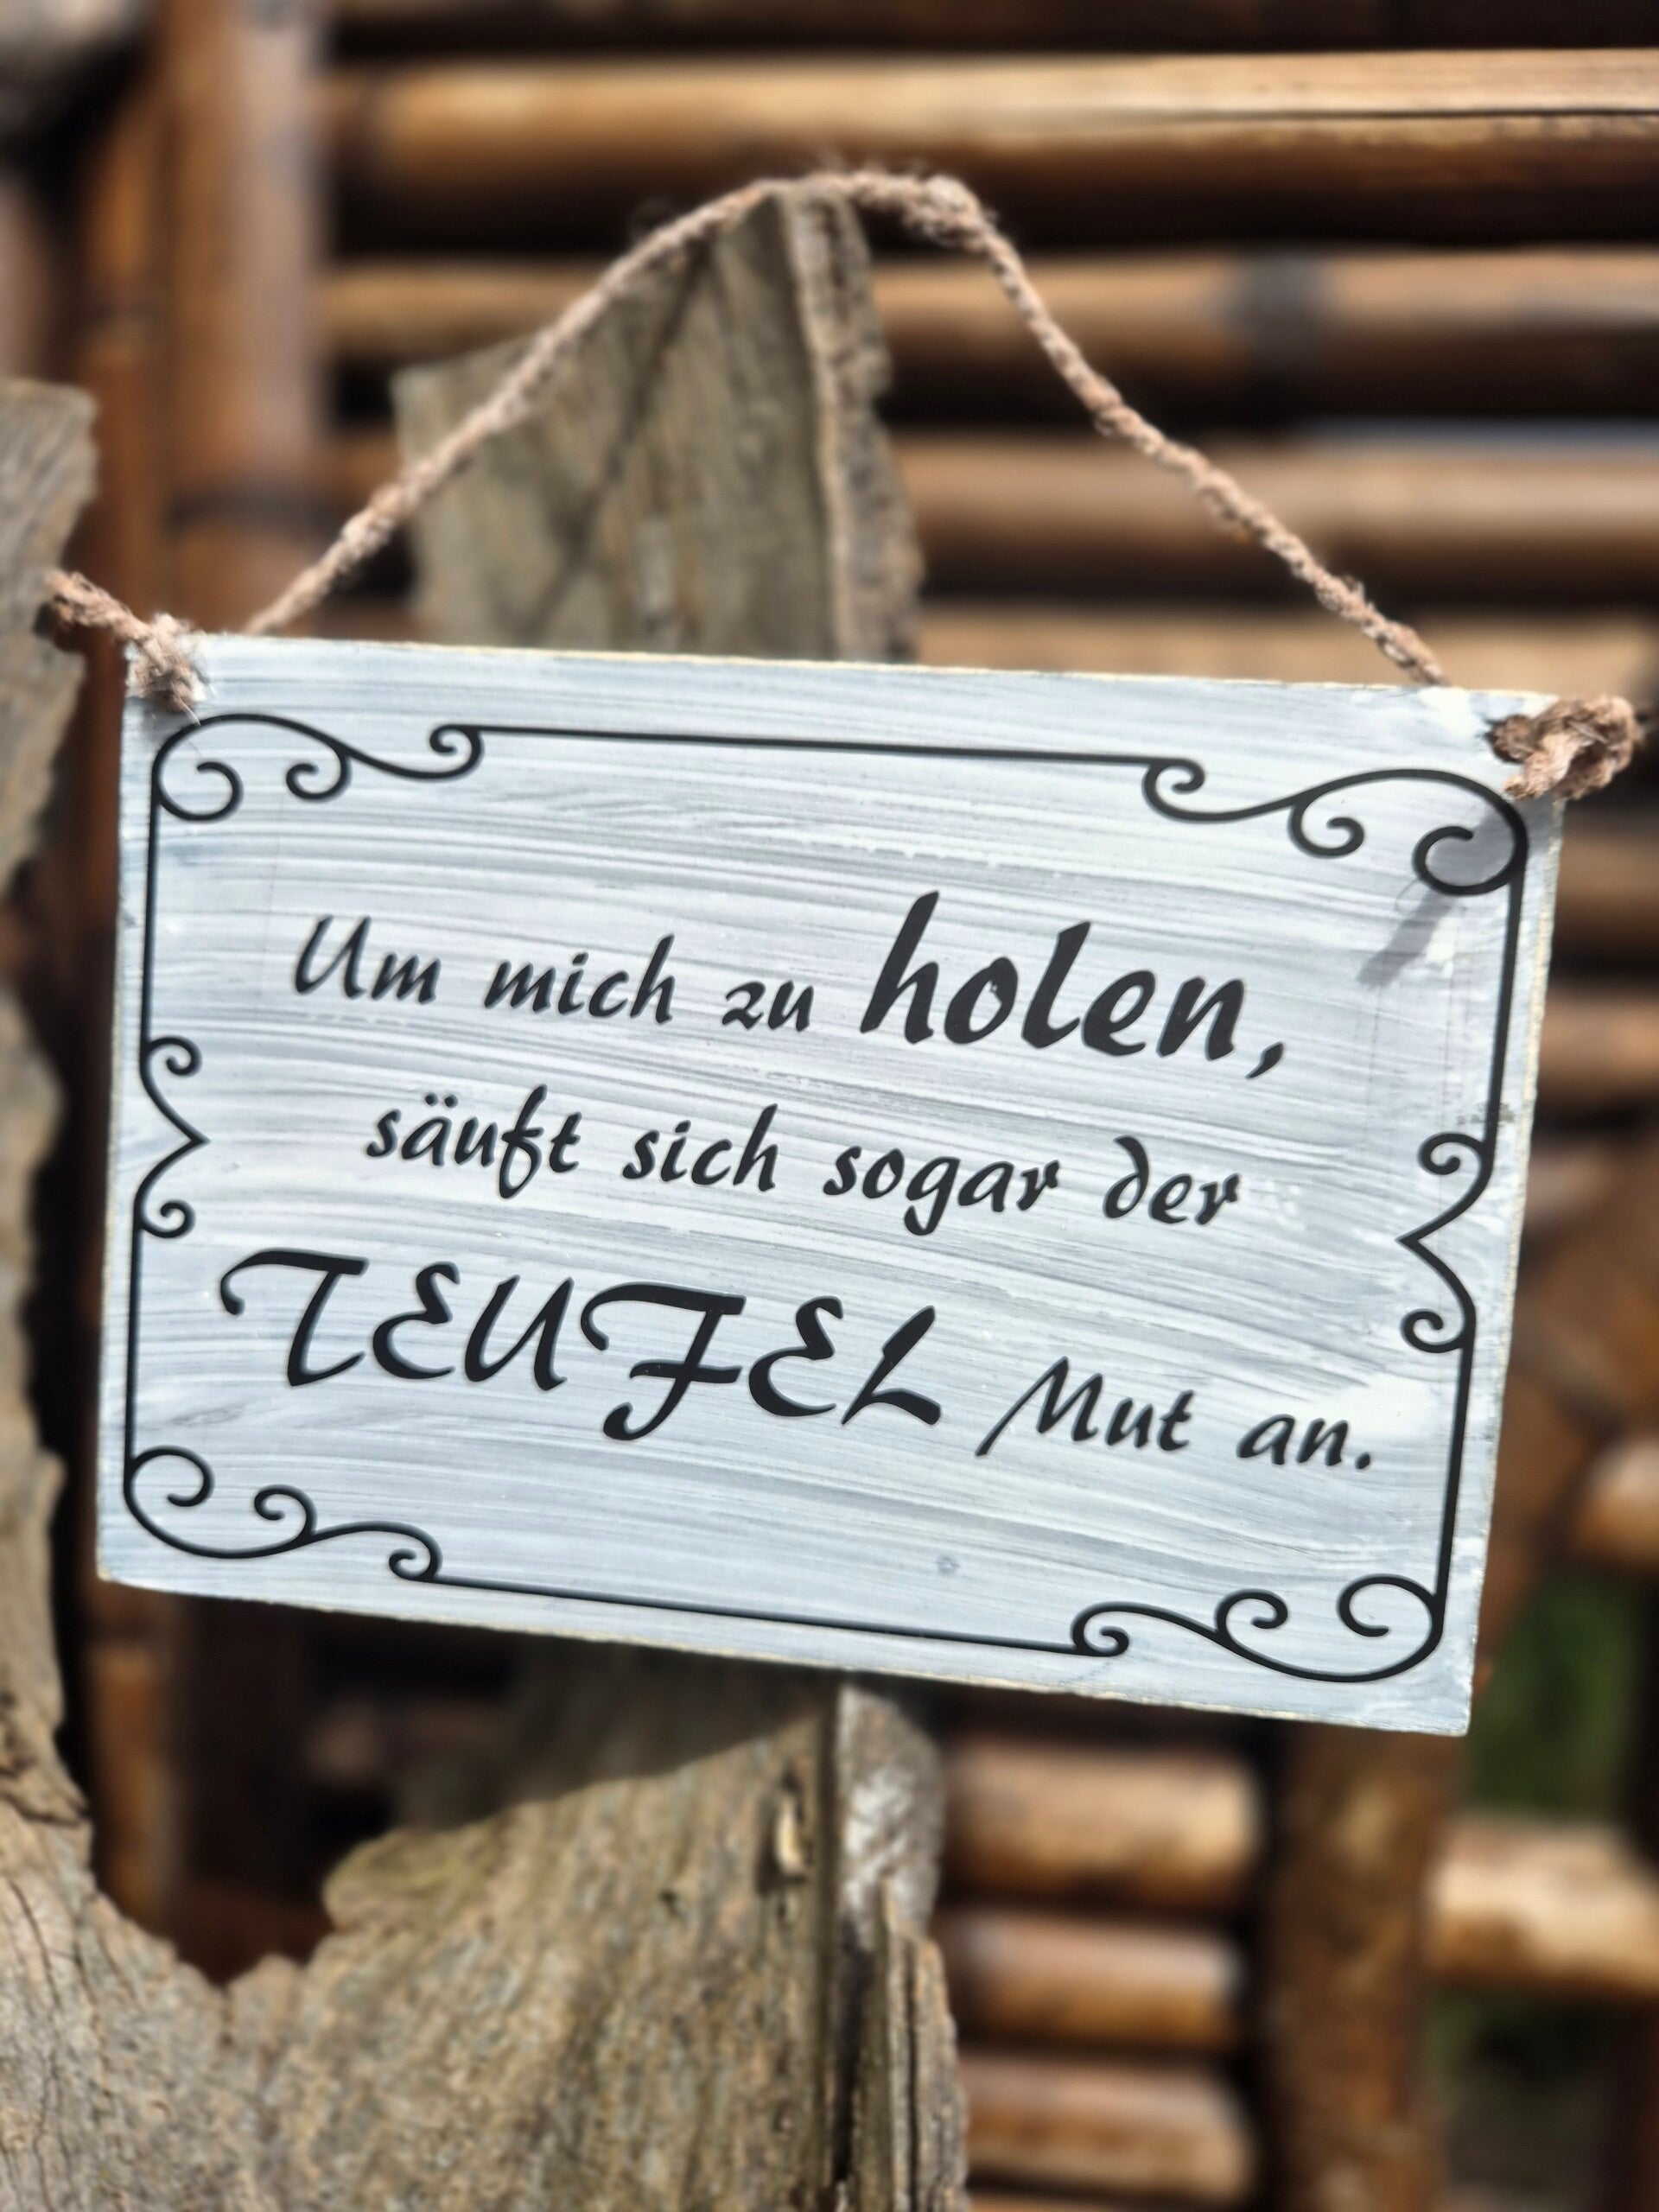 Um mich zu holen,
säuft sich sogar der
TEUFEL Mut an.